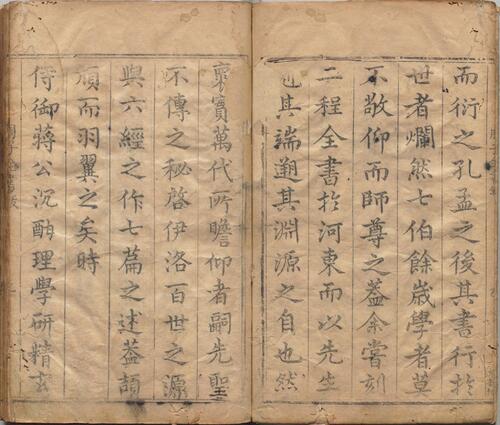 而衍之孔孟之後其書行於
世者爛然七伯餘歲學者莫
不敬仰而師尊之蓋余嘗刻
二程全書於河東而以先生
其端遡其淵源之自也然
裒實萬代所瞻仰者嗣先聖
不傳之秘啓伊洛百世之源
與六經之作七篇之述蓋頡
頏而羽翼之矣時
侍御蔣公沉酣理學研精玄